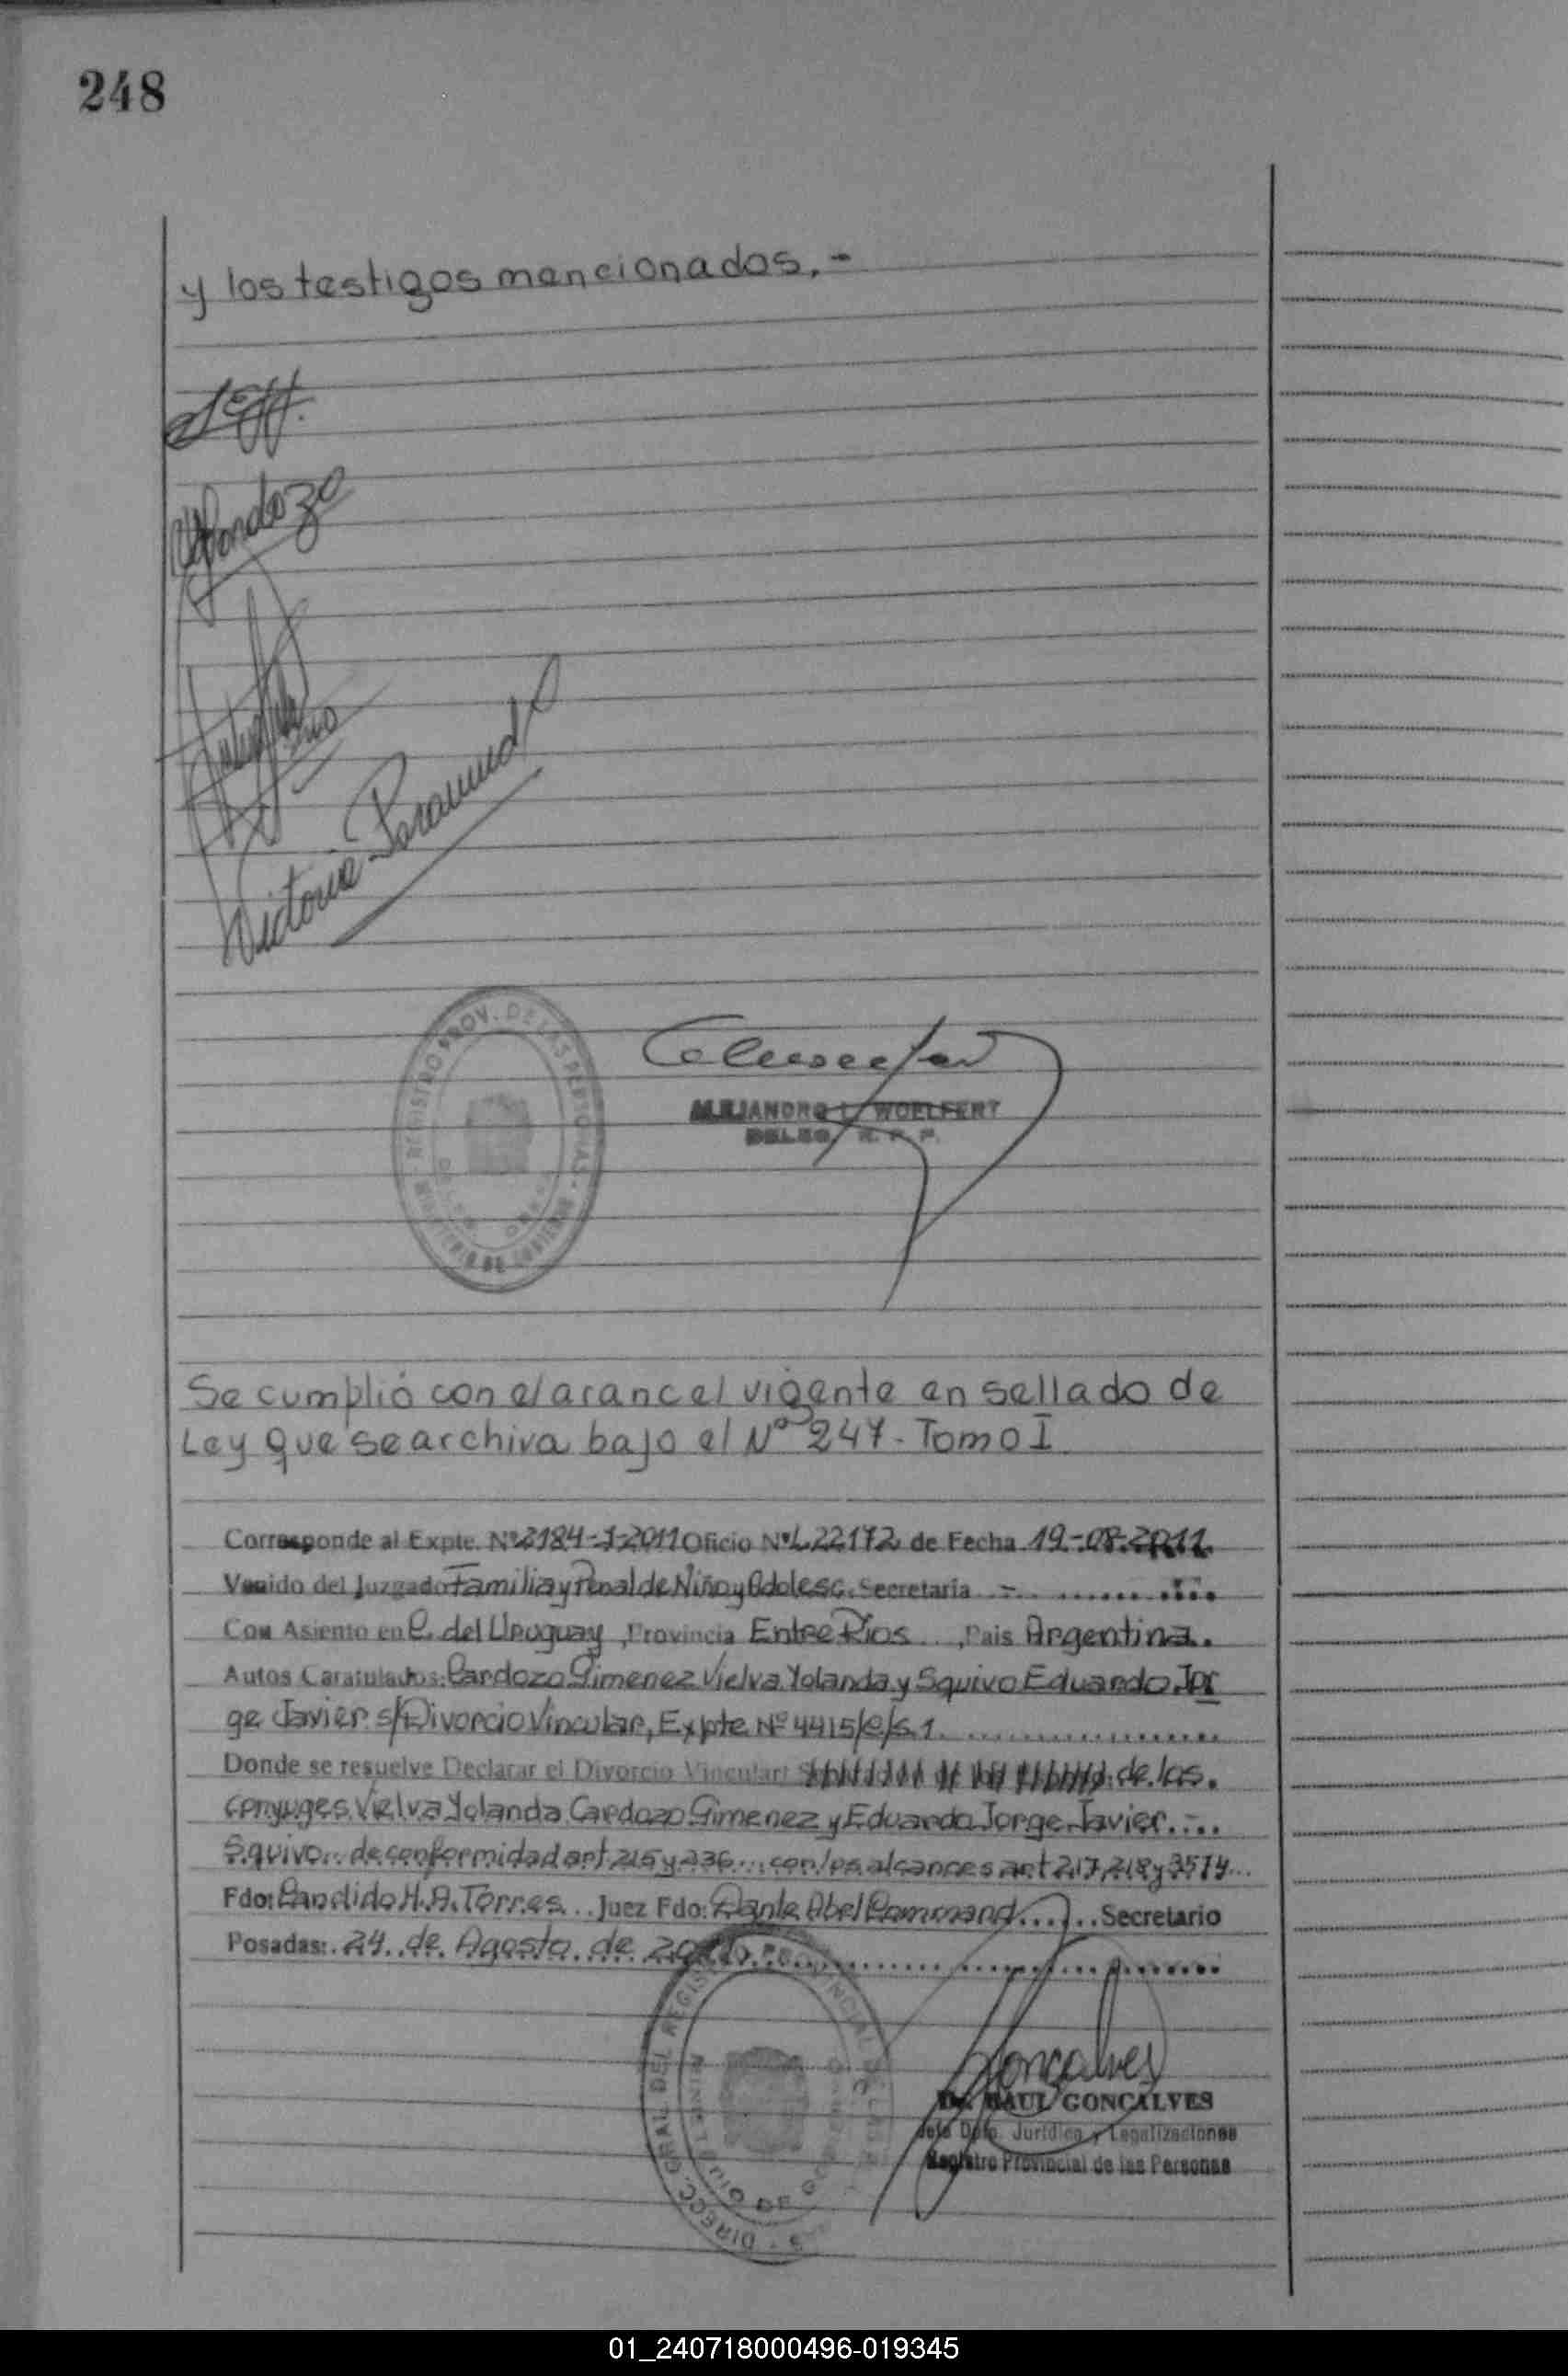 248
y los testigos mencionados.-
Cardozo
Victoria
REGISTRO PROV. DE LAS PERSONAS - MINISTERIO DE GOBIERNO
ALEJANDRO L. WOELFERT
DELEG. R. P. P.
Se cumplió con el arancel vigente en sellado de
Ley que se archiva bajo el Nº 247 - Tomo I
Corresponde al Expte. Nº 2184-J-2011 Oficio Nº L22172 de Fecha 19-08-2011
Venido del Juzgado Familia y Penal de Niño y Adolesc. Secretaría -
Con Asiento en C. del Uruguay, Provincia Entre Rios, Pais Argentina.
Autos Caratulados: Cardozo Gimenez Vielva Yolanda y Squivo Eduardo Jor
ge Javier s/Divorcio Vincular, Expte Nº 4415/C/S.1
Donde se resuelve Declarar el Divorcio Vincular de los
conyuges Vielva Yolanda Cardozo Gimenez y Eduardo Jorge Javier
Squivo.. de conformidad art 215 y 236... con los alcances art 217, 218 y 3574...
Fdo: Candido H. A. Torres.. Juez Fdo: Dante Abel Secretario
Posadas: 24 de Agosto de 2011
DIRECC. GRAL. DEL REGISTRO PROVINCIAL DE LAS PERSONAS
MINISTERIO DE GOBIERNO
Goncalves
Dr. RAUL GONCALVES
Jefe Dpto. Jurídico y Legalizaciones
Registro Provincial de las Personas
01_240718000496-019345